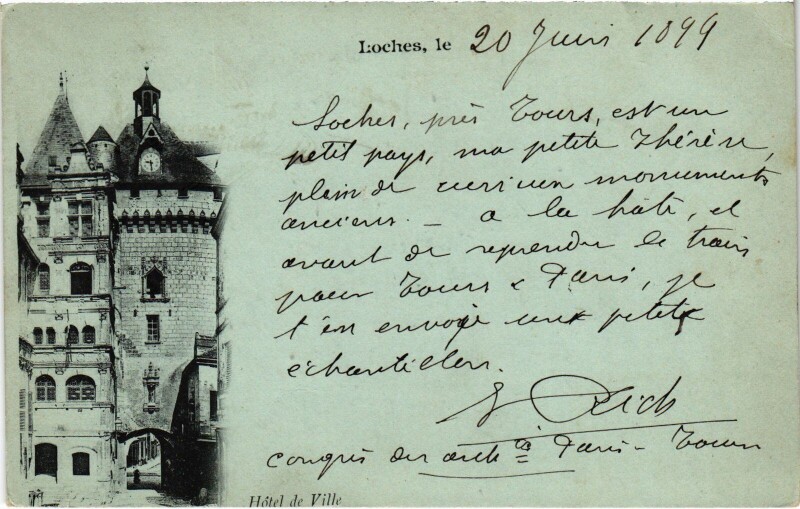 Loches, le 20 Juin 1899
Loches, près Tours, est un
petit pays, ma petite Thérèse,
plein de curieux monuments
anciens. — a la hâte, et
avant de reprendre le train
pour Tours & Paris, je
t'en envoie un petit
échantillon.
E Rich
Congrès des archtes à Paris - Tours
Hôtel de Ville